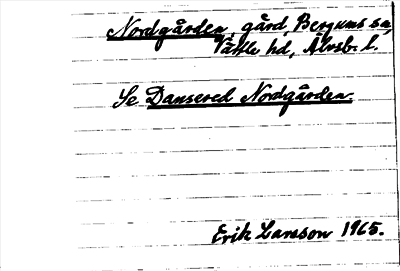 Nordgården, gård, Bergums sn,
Vättle hd, Älvsb. l.
Se Dansered Nordgården.
Erik Larsson 1965.